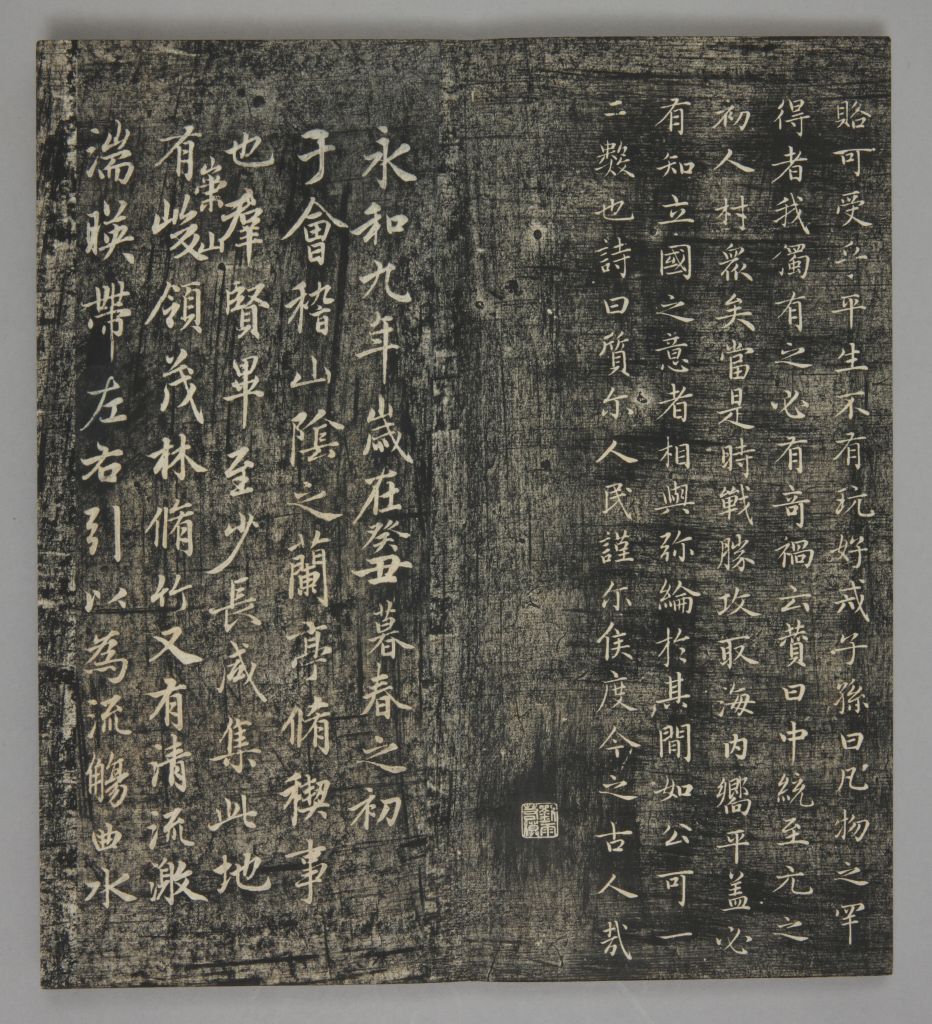 賂可受乎平生不有玩好戒子孫曰凡物之罕
得者我濁有之必有奇禍云贊曰中統至元之
初人材眾矣當是時戰勝攻取海内嚮平盖必
有知立國之意者相與弥綸於其間如公可一
二數也詩曰質尔人民謹尔侯度今之古人哉
永和九年歲在癸丑暮春之初
于會稽山陰之蘭亭脩稧事
也羣賢畢至少長咸集此地
有崇山峻領茂林脩竹又有清流激
湍暎帶左右引以為流觴曲水